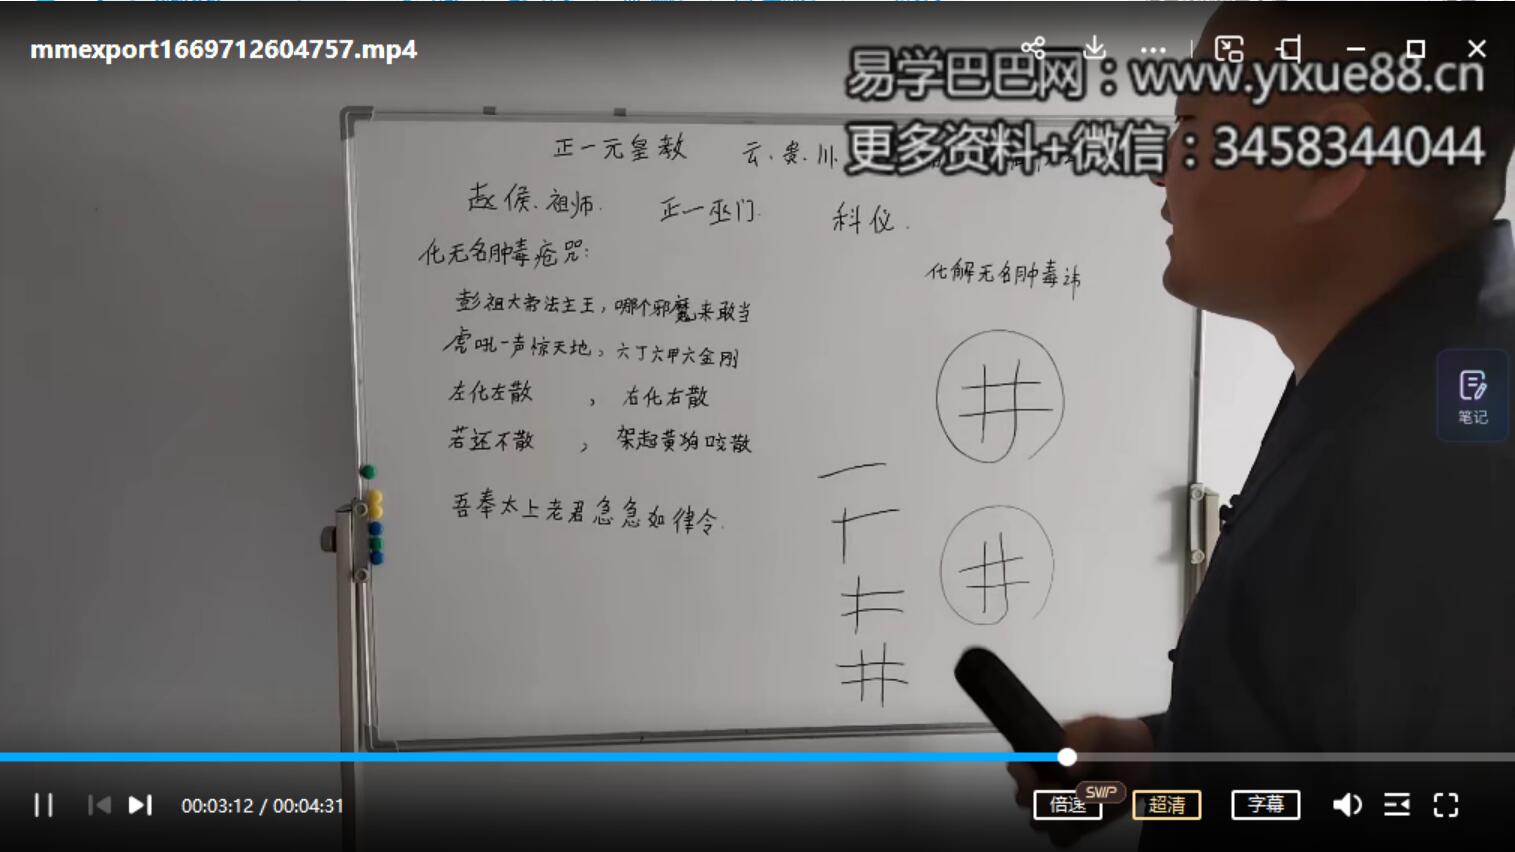 mmexport1669712604757.mp4
易学巴巴网：www.yixue88.cn
更多资料+微信：3458344044
正一元皇教 云、贵、川、
赵侯、祖师. 正一巫门. 科仪.
化无名肿毒疮咒：
化解无名肿毒讳
彭祖大帝法主王，哪个邪魔来敢当
虎吼一声惊天地，六丁六甲六金刚
左化左散 ， 右化右散
若还不散 ， 架起黄狗咬散
吾奉太上老君急急如律令.
井
井
笔记
00:03:12 / 00:04:31
倍速
SVIP
超清
字幕